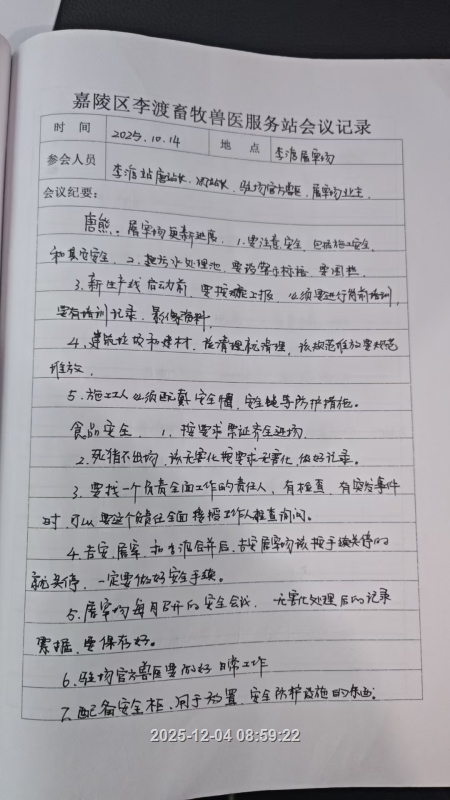 嘉陵区李渡畜牧兽医服务站会议记录
时 间 2025.10.14 地 点 李渡屠宰场
参会人员 李渡站唐站长、站长、驻场官方兽医、屠宰场业主.
会议纪要:
唐熊. 屠宰场更新进度. 1.要注意安全, 包括施工安全
和其它安全. 2.挖污水处理池, 要设警示标语, 要围栏.
3.新生产线启动前, 要按工报, 必须要进行岗前培训,
要有培训记录. 影像资料.
4.建筑垃圾和建材, 该清理就清理, 该规范堆放要规范
堆放.
5.施工人必须配戴安全帽, 安全绳等防护措施.
食品安全. 1、按要求票证齐全进场.
2.死猪不出场, 该无害化按要求无害化, 做好记录.
3.要找一个负责全面工作的责任人, 有检查, 有突发事件
时, 可以要这个负责任全面接待工作人检查询问.
4.吉安, 屠宰, 和李渡合并后, 吉安屠宰场该按手续关停的
就关停, 一定要做好安全手续.
5.屠宰场每月召开的安全会议, 无害化处理后的记录
票据, 要保存好.
6.驻场官方兽医要做好日常工作
7.配备安全柜, 用于放置, 安全防护设施的东西.
2025-12-04 08:59:22